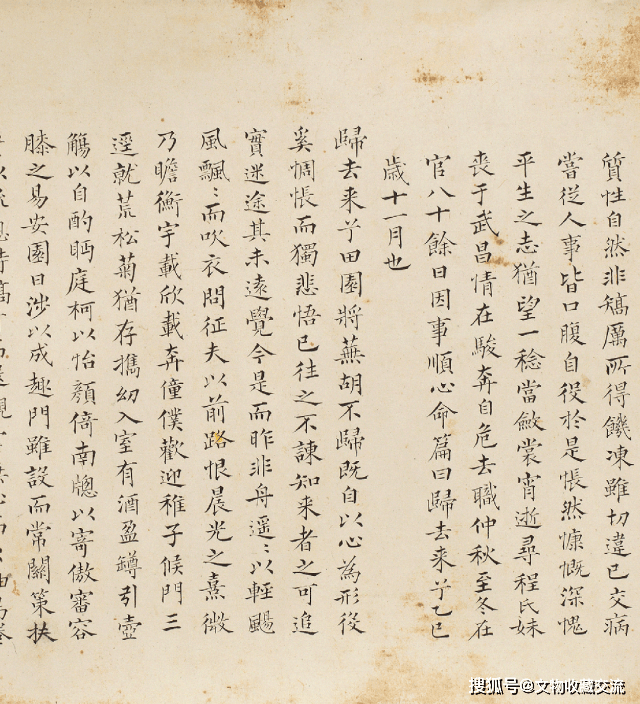 質性自然非矯厲所得饑凍雖切違已交病
嘗從人事皆口腹自役於是悵然慷慨深愧
平生之志猶望一稔當斂裳宵逝尋程氏妹
喪于武昌情在駿奔自危去職仲秋至冬在
官八十餘日因事順心命篇曰歸去来兮乙巳
歳十一月也
歸去来兮田園將蕪胡不歸既自以心為形役
奚惆悵而獨悲悟已往之不諫知来者之可追
實迷途其未遠覺今是而昨非舟遥〻以輕颺
風飄〻而吹衣問征夫以前路恨晨光之熹微
乃瞻衡宇載欣載奔僮僕歡迎稚子候門三
逕就荒松菊猶存攜幼入室有酒盈罇引壺
觴以自酌眄庭柯以怡顏倚南牕以寄傲審容
膝之易安園日涉以成趣門雖設而常關策扶
搜狐号@文物收藏交流